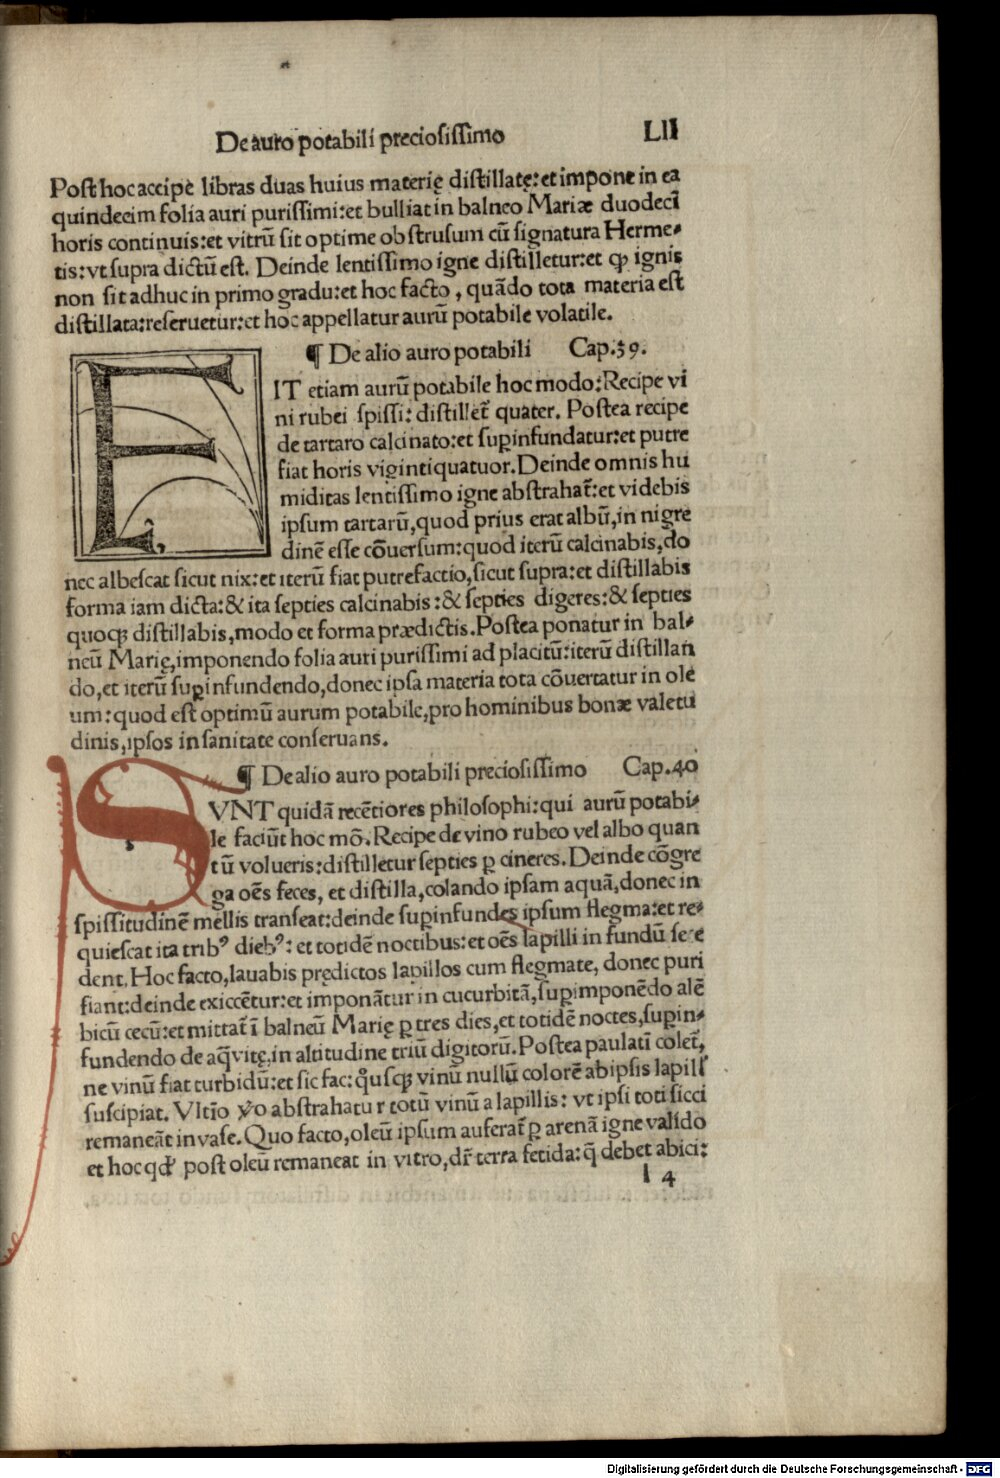 De auro potabili preciosissimo LII
Post hoc accipe libras duas huius materię distillatę: et impone in ea
quindecim folia auri purissimi: et bulliat in balneo Mariæ duodecī
horis continuis: et vitrū sit optime obstrusum cū signatura Herme-
tis: vt supra dictū est. Deinde lentissimo igne distilletur: et ꝙ ignis
non sit adhuc in primo gradu: et hoc facto, quādo tota materia est
distillata: reseruetur: et hoc appellatur aurū potabile volatile.
¶ De alio auro potabili Cap.39.
FIT etiam aurū potabile hoc modo: Recipe vi
ni rubei spissi: distilletˉ quater. Postea recipe
de tartaro calcinato: et suꝑinfundatur: et putre
fiat horis vigintiquatuor. Deinde omnis hu
miditas lentissimo igne abstrahatˉ: et videbis
ipsum tartarū, quod prius erat albū, in nigre
dinē esse cōuersum: quod iterū calcinabis, do
nec albescat sicut nix: et iterū fiat putrefactio, sicut supra: et distillabis
forma iam dicta: & ita septies calcinabis: & septies digeres: & septies
quoqꝫ distillabis, modo et forma prædictis. Postea ponatur in bal-
neū Marię, imponendo folia auri purissimi ad placitū: iterū distillan
do, et iterū suꝑinfundendo, donec ipsa materia tota cōuertatur in ole
um: quod est optimū aurum potabile, pro hominibus bonæ valetu
dinis, ipsos in sanitate conseruans.
¶ De alio auro potabili preciosissimo Cap.40
SVNT quidā recētiores philosophi: qui aurū potabi-
le faciūt hoc mō. Recipe de vino rubeo vel albo quan
tū volueris: distilletur septies ꝑ cineres. Deinde cōgre
ga oēs feces, et distilla, colando ipsam aquā, donec in
spissitudinē mellis transeat: deinde suꝑinfundes ipsum flegma: et re-
quiescat ita tribꝰ diebꝰ: et totidē noctibus: et oēs lapilli in fundū se e
dent. Hoc facto, lauabis prędictos lapillos cum flegmate, donec puri
fiant: deinde exiccētur: et imponātur in cucurbitā, suꝑimponēdo alē
bicū cecū: et mittatˉ ī balneū Marię ꝑ tres dies, et totidē noctes, suꝑin-
fundendo de aq̄vitę, in altitudine triū digitorū. Postea paulatī coletˉ,
ne vinū fiat turbidū: et sic fac: qͦusqꝫ vinū nullū colorē ab ipsis lapill'
suscipiat. Vltīo ꝟo abstrahatur totū vinū a lapillis: vt ipsi toti sicci
remaneāt in vase. Quo facto, oleū ipsum auferatˉ ꝑ arenā igne valido
et hoc qđ post oleū remaneat in vitro, dr̄ terra fetida: q̄ debet abici:
l 4
Digitalisierung gefördert durch die Deutsche Forschungsgemeinschaft - DFG